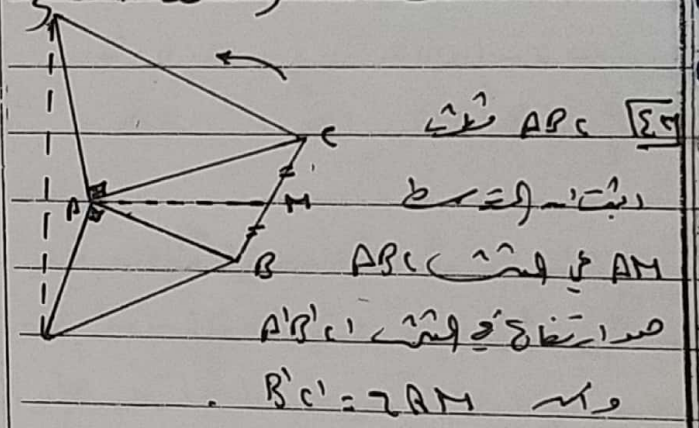 C
A
M
B
[٤٩] ABC مثلث
اثبت ان المتوسط
AM في المثلث ABC
هو ارتفاع في المثلث A'B'C'
وان B'C' = 2AM .